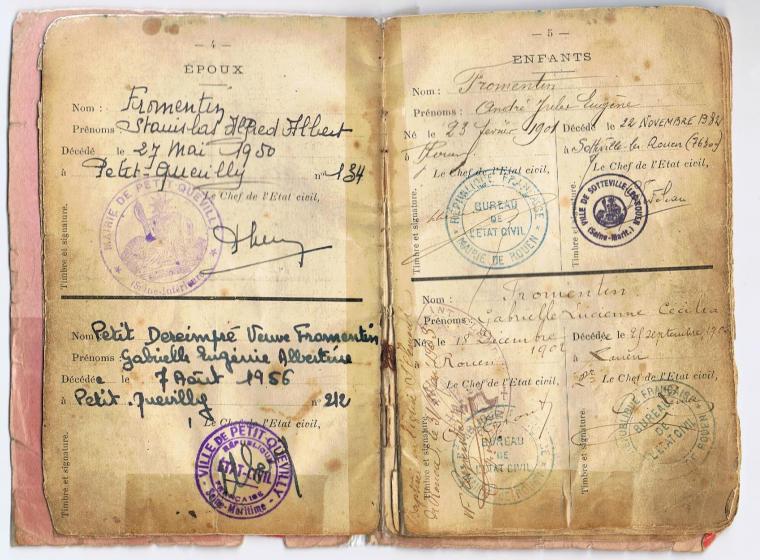 — 4 —
ÉPOUX
Nom : Fromentin
Prénoms Stanislas Alfred Albert
Décédé le 27 Mai 1950
à Petit-Quevilly n° 134
Le Chef de l'Etat civil,
Timbre et signature.
MAIRIE DE PETIT QUEVILLY
(Seine-Inférieure)
Nom Petit Dereimpré Veuve Fromentin
Prénoms : Gabrielle Eugénie Albertine
Décédée le 7 Août 1956
à Petit-Quevilly n° 212
Le Chef de l'Etat civil,
Timbre et signature.
VILLE DE PETIT-QUEVILLY
RÉPUBLIQUE
ÉTAT-CIVIL
FRANÇAISE
Seine-Maritime
— 5 —
ENFANTS
Nom : Fromentin
Prénoms : André Jules Eugène
Né le 23 février 1901 Décédé le 22 NOVEMBRE 1982
à Rouen à Sotteville-les-Rouen
Le Chef de l'Etat civil, Le Chef de l'Etat civil,
Timbre et signature. Timbre et signature.
RÉPUBLIQUE FRANÇAISE
BUREAU
DE
L'ÉTAT CIVIL
MAIRIE DE ROUEN
VILLE DE SOTTEVILLE-LES-ROUEN
(Seine-Marit.)
Nom : Fromentin
Prénoms : Gabrielle Lucienne Cecilia
Née le 18 Décembre Décédée le
1902 à Rouen
à Rouen
Le Chef de l'Etat civil,
Timbre et signature. Timbre et signature.
BUREAU
DE
L'ÉTAT CIVIL
RÉPUBLIQUE FRANÇAISE
BUREAU
DE
L'ÉTAT CIVIL